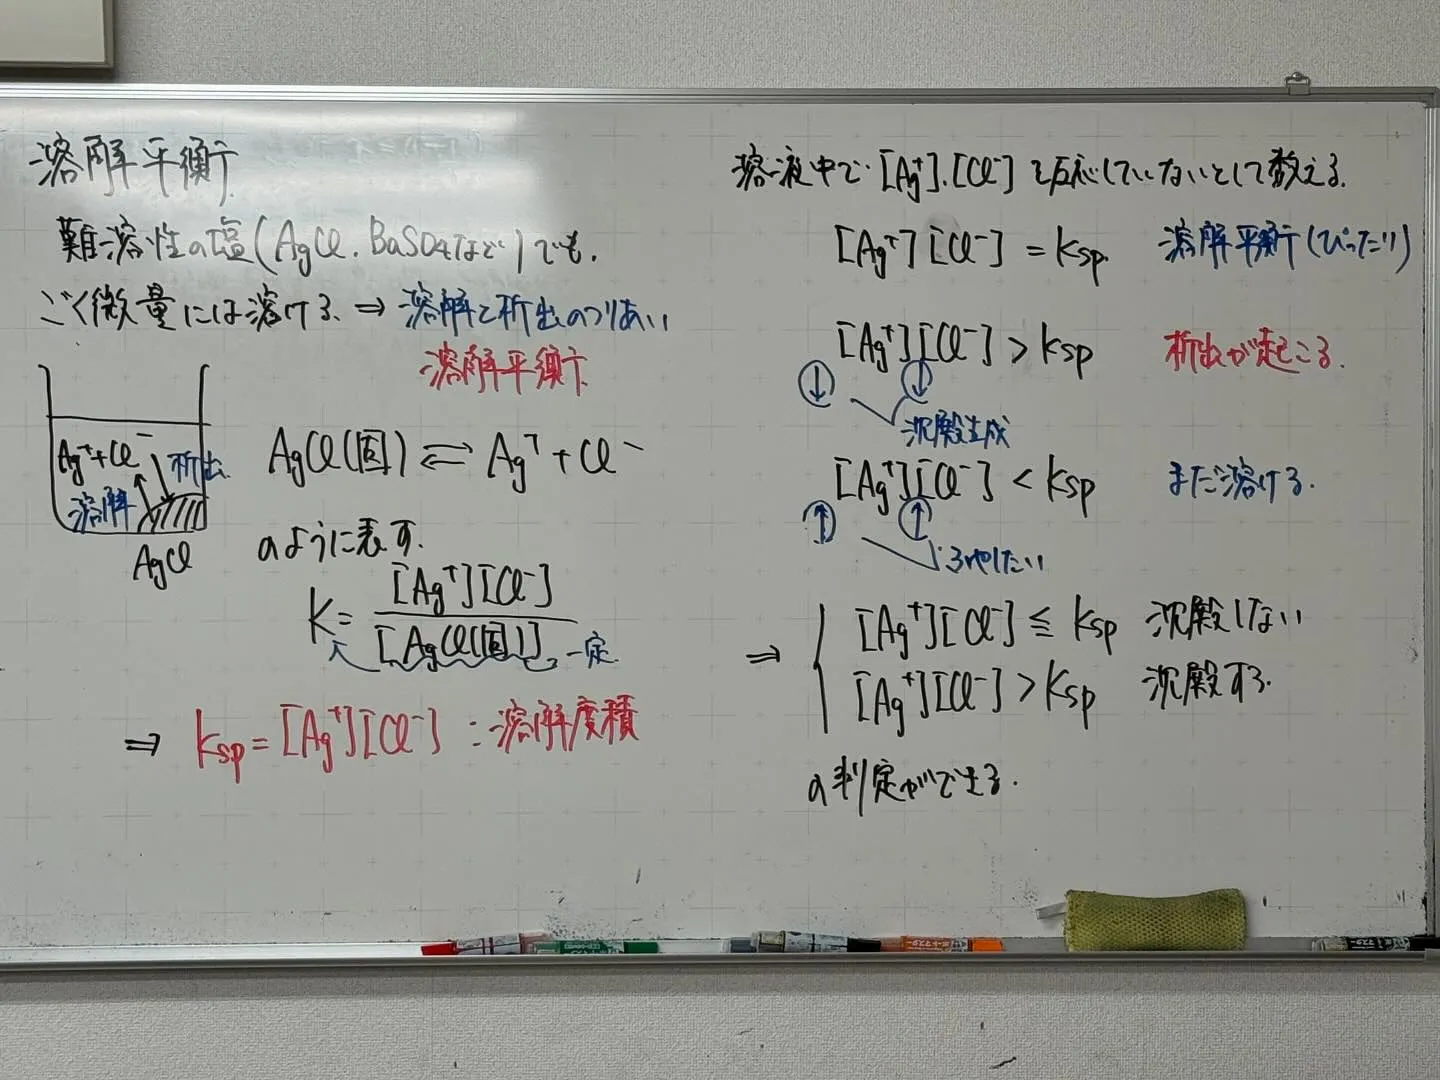 溶解平衡
難溶性の塩(AgCl, BaSO4など)でも,
ごく微量には溶ける ⇒ 溶解と析出のつりあい
溶解平衡
Ag⁺+Cl⁻ 析出
溶解
AgCl
AgCl(固) ⇄ Ag⁺ + Cl⁻
のように表す.
K = [Ag⁺][Cl⁻] / [AgCl(固)] 一定
⇒ Ksp = [Ag⁺][Cl⁻] : 溶解度積
溶液中で [Ag⁺], [Cl⁻] を反応していないとして数える.
[Ag⁺][Cl⁻] = Ksp 溶解平衡(ぴったり)
[Ag⁺][Cl⁻] > Ksp 析出が起こる.
↓ ↓
沈殿生成
[Ag⁺][Cl⁻] < Ksp まだ溶ける.
↑ ↑
ふやしたい
⇒ { [Ag⁺][Cl⁻] ≦ Ksp 沈殿しない
[Ag⁺][Cl⁻] > Ksp 沈殿する.
の判定ができる.